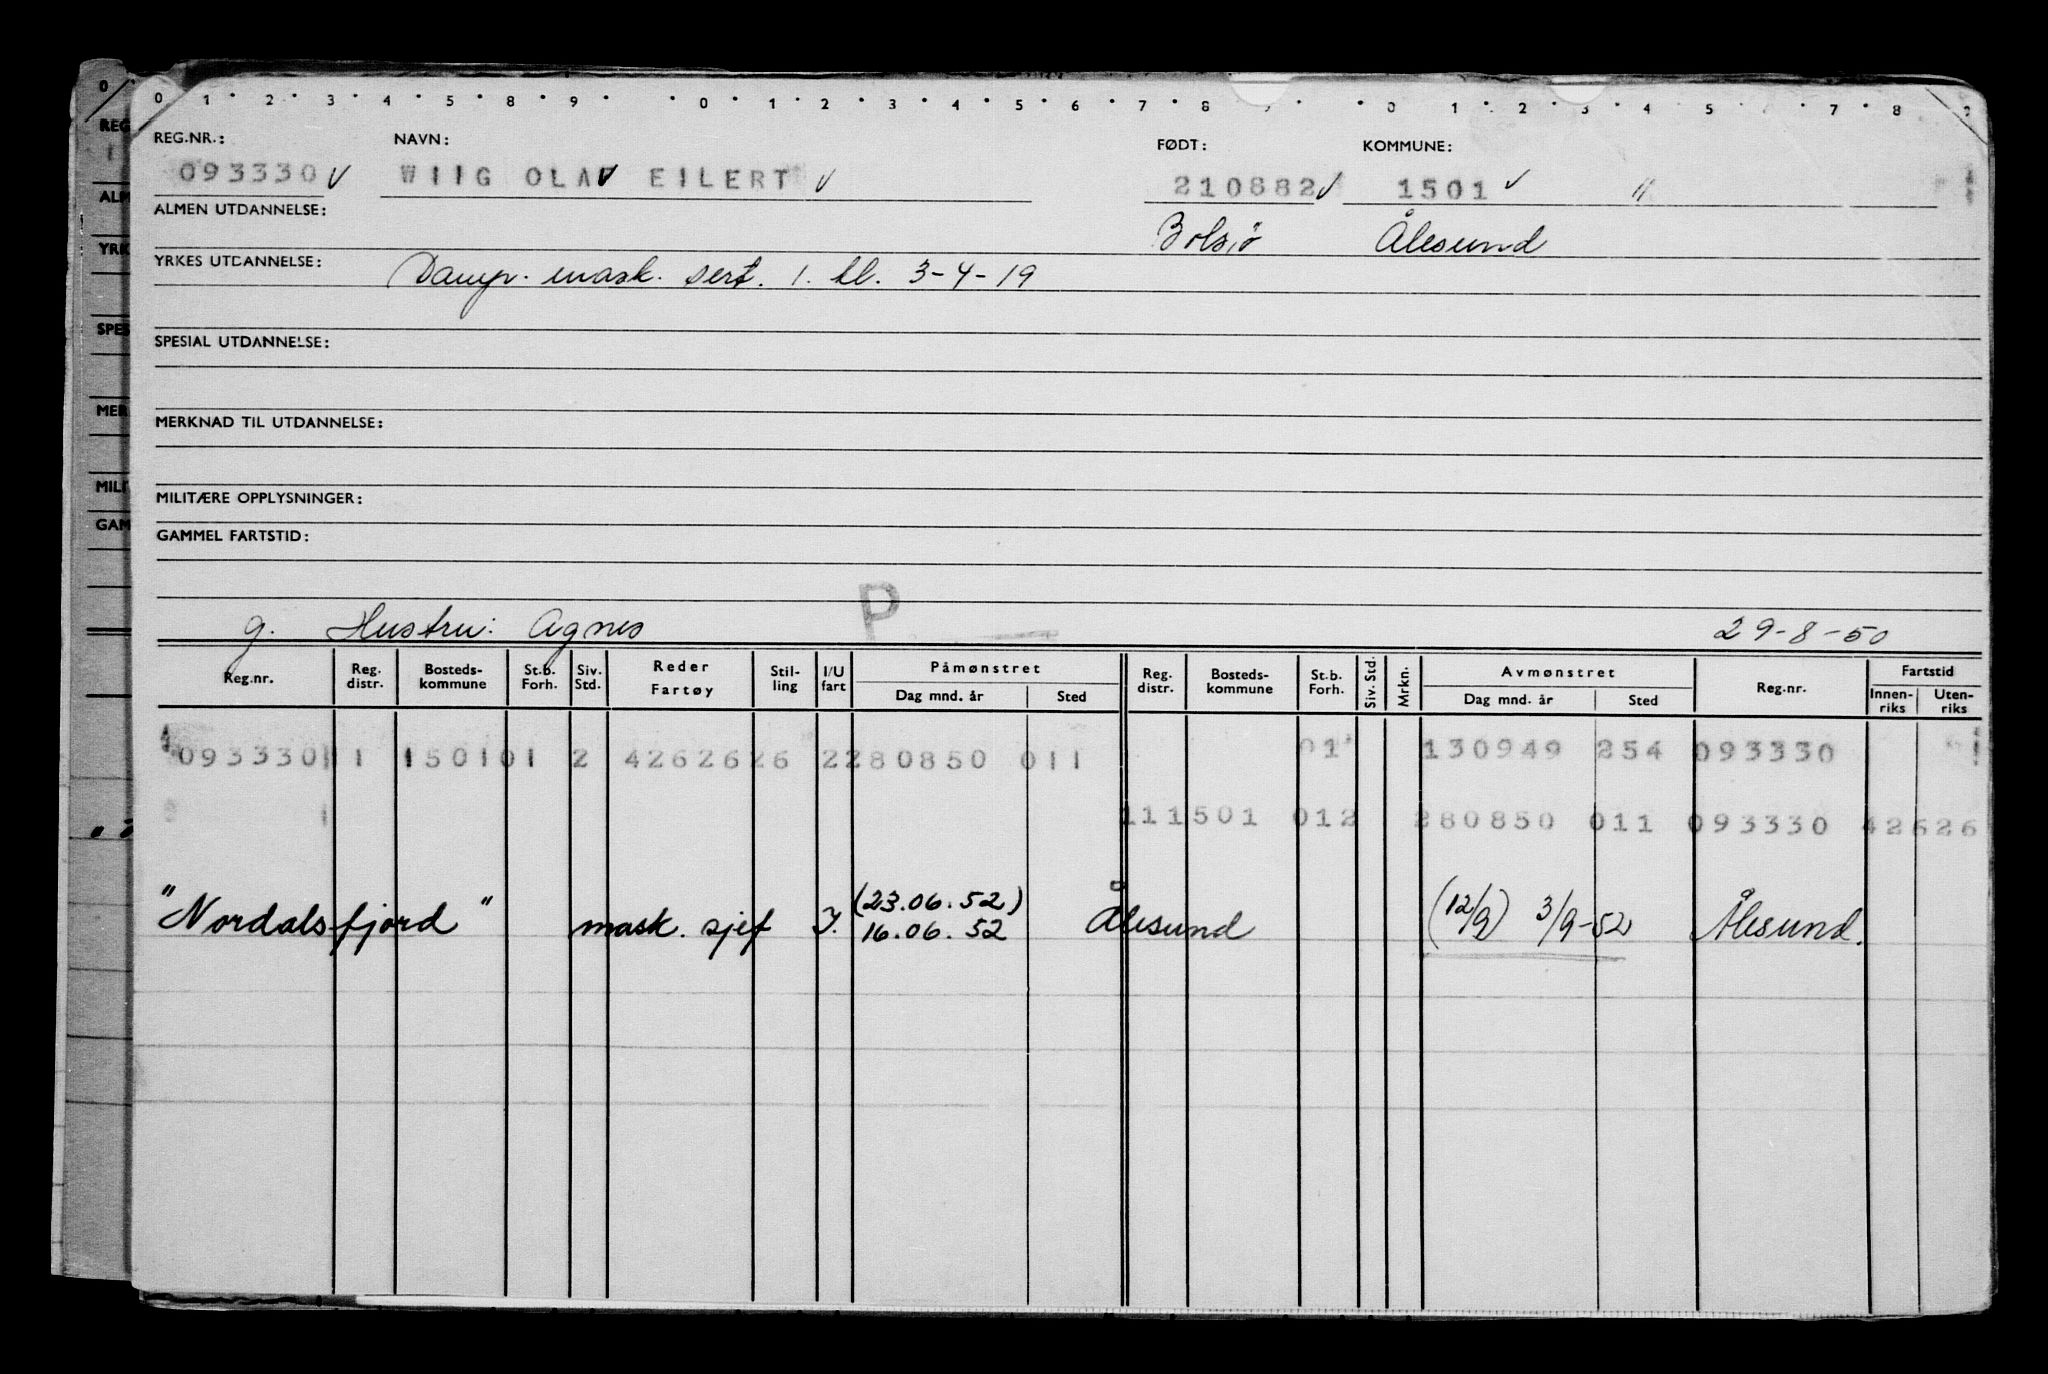 0 1 2 3 4 5 8 9 0 1 2 3 4 5 6 7 8 9 0 1 2 3 4 5 7 8
REG.NR.: NAVN: FØDT: KOMMUNE:
093330 WIIG OLAV EILERT 210882 1501 "
ALMEN UTDANNELSE: Bolsø Ålesund
YRKES UTDANNELSE: Damp. mask. sert. 1. kl. 3-4-19
SPESIAL UTDANNELSE:
MERKNAD TIL UTDANNELSE:
MILITÆRE OPPLYSNINGER:
GAMMEL FARTSTID:
P
g. Hustru: Agnes 29-8-50
Reg.nr. Reg. distr. Bosteds-kommune St.b. Forh. Siv. Std. Reder Fartøy Stil-ling I/U fart Påmønstret Dag mnd. år Sted Reg. distr. Bosteds-kommune St.b. Forh. Siv. Std. Mrkn. Avmønstret Dag mnd. år Sted Reg.nr. Fartstid Innen-riks Uten-riks
093330 1 150101 2 4262626 2280850 011 01 130949 254 093330
111501 012 280850 011 093330 42626
"Nordalsfjord" mask. sjef I. (23.06.52) 16.06.52 Ålesund (12/9) 3/9-52 Ålesund.